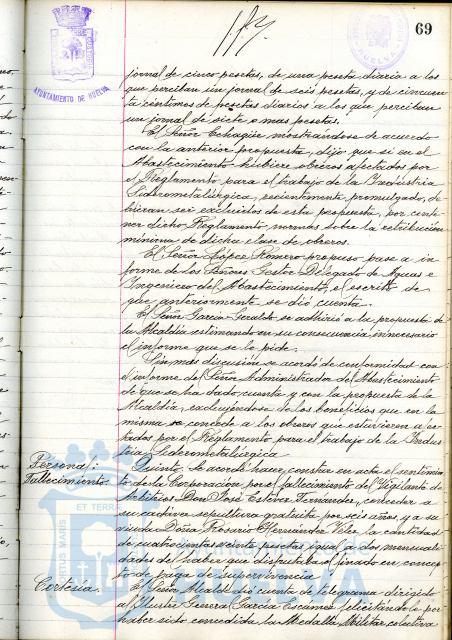 69
AYUNTAMIENTO DE HUELVA
jornal de cinco pesetas, de una peseta diaria a los
que perciban un jornal de seis pesetas, y de cincuen-
ta céntimos de pesetas diarios a los que perciban
un jornal de siete o mas pesetas.
El Señor Echagüe mostrándose de acuerdo
con la anterior propuesta, dijo que si en el
Abastecimiento hubiere obreros afectados por
el Reglamento para el trabajo de la Industria
Siderometalúrgica, recientemente promulgado, de-
bieran ser excluidos de esta propuesta, por conte-
ner dicho Reglamento normas sobre la retribución
mínima de dicha clase de obreros.
El Señor López Romero propuso pase a in-
forme de los Señores Gestor Delegado de Aguas e
Ingeniero del Abastecimiento, el escrito de
que anteriormente se dió cuenta.
El Señor García se adhirió a la propuesta de
la Alcaldía estimando en su consecuencia innecesario
el informe que se le pide.
Sin mas discusión se acordó de conformidad con
el informe del Señor Administrador del Abastecimiento
de que se ha dado cuenta y con la propuesta de la
Alcaldía, excluyéndose de los beneficios que en la
misma se concede a los obreros que estuvieren afec-
tados por el Reglamento para el trabajo de la Indus-
tria Siderometalúrgica
Personal:
Fallecimiento.
Quinto. Se acordó hacer constar en acta el sentimien-
to de la Corporación por el fallecimiento del Vigilante de
Arbitrios Don José Estever Fernández, conceder a
su cadáver sepultura gratuita por seis años, y a su
viuda Doña Rosario Hernández Vélez la cantidad
de cuatrocientas veinte pesetas igual a dos mensuali-
dades de haber que disfrutaba el finado en concep-
to de paga de supervivencia.
Cortesía.
El Señor Alcalde dió cuenta de telegrama dirigido
al Ilustre General García Escámez felicitándole por
haber sido concedida la Medalla Militar colectiva
Ayuntamiento de
HUELVA